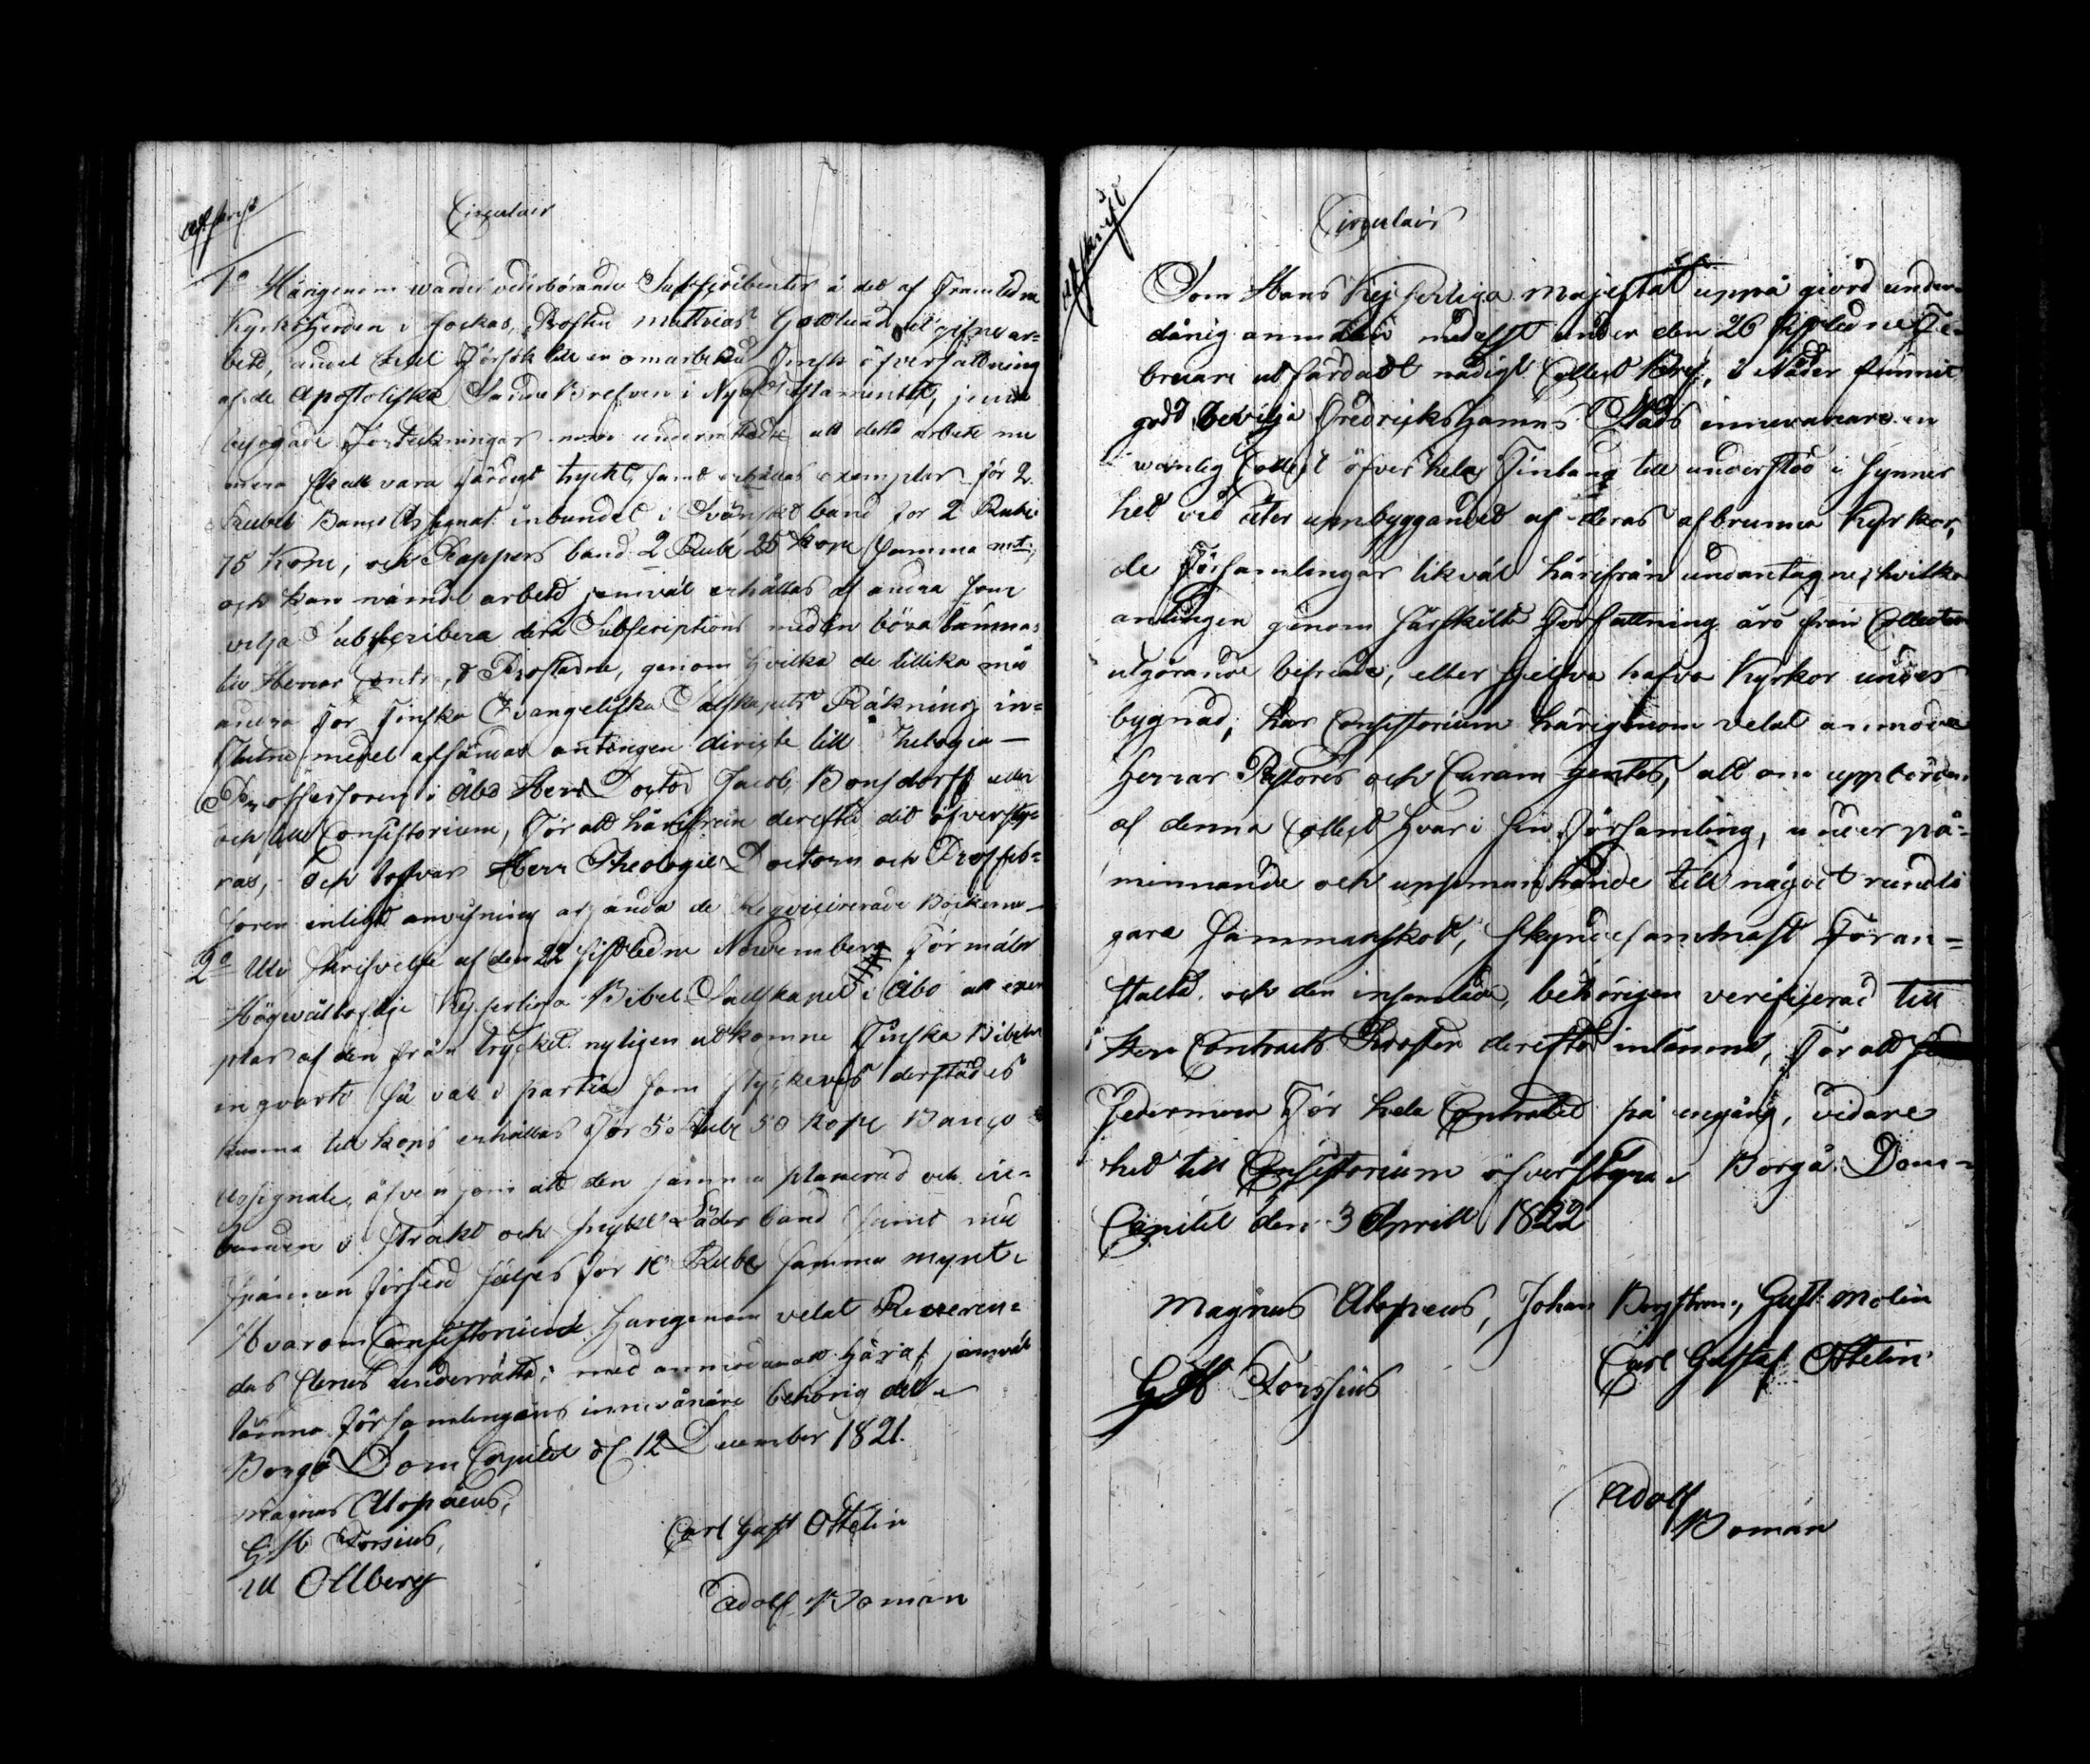 Afskrift
Circulair
1o Härigenom warda vederbörande Subscribenter å det af Framledne
KyrkoHerden i Jockas, Prosten Matthias Gottlund utgifne ar-
bete, under titel Försök till en omarbetad Finsk öfversättning
af de Apostoliska SändeBrefven i Nya Testamentet, jemte
befogade Förteckningar underrättade att detta arbete nu
mera skall vara färdigt tryckt, samt erhållas exemplar för 2
Rubel Banco Assignat. inbundet i Svänskt band for 2 Rube
75 Kope, och Pappers band 2 Rube 25 Kope samma mt.;
och kan nämde arbete jemväl erhållas af andra som
vilja Subscribera derå Subscriptions medlen böra lämnas
till Herrar Contr. Prostarne, genom hvilka de tillika med
andra för Finska Evangeliska Sälskapets Räkning in-
flutne medel afsändas antingen directe till Theologiæ
Professoren i Åbo Herr Doctor Jacob Bonsdorff eller
och till Consistorium, för att härifrån derefter dit öfversty-
ras, och lofvar Herr Theologie Doctorn och Profes-
soren enligt anvisning afsända de Requirerade Böckerne
2o Uti skrifvelse af den 22 sistledne November förmäler
Högvälloflige Kejserliga Bibel Sällskapet i Åbo att exem
plar af den från trycket nyligen utkomne Finska Bibeln
in qvarto så väl i partie som styckevis derstädes
kunna till köps erhållas för 5 Rube 50 Kope Banco
Assignate, äfven som att den samma planerad och in-
bunden i starkt och snyggt Läder band samt med
spännen försedd säljes för 10 Rube samma mynt.
Hvarom Consistorium härigenom velat Reveren-
das Clerus underrätta; med anmodan att häraf jemväl
lämna Församlingens innevånare behörig del.
Borgå Dom Capitel d 12 December 1821.
Magnus Alopæus,
G M Forsius,
Carl Gust Ottelin
M Ollberg
Adolf Boman
Afskrift
Circulair
Som Hans Kejserliga Majestät uppå giord under-
dånig anmälan medelst under den 26 sistledne Fe-
bruari utfärdadt nådigt Collect Bref, i Nåder funnit
godt bevilja Fredrickshamns Stads innevånare en
wanlig Collect öfver hela Finland till understöd i synner
het vid åter uppbyggandet af deras afbrunna Kyrkor,
de Församlingar likväl härifrån undantagne, hvilka
antingen genom särskilte Författning äro från Collecters
utgörande befriade, eller sielfva hafva Kyrkor under
bygnad; har Consistorium härigenom velat anmoda
Herrar Pastores och Curam gentes, att om uppbörden
af denna Collect hvar i sin Församling, under på-
minnande och uppmuntrande till något rundli
gare sammanskott, skyndesammast Föran-
stalta, och den insamlade, behörigen verificerad till
Herr Contracts Prosten derefter inlämna, för att
sedermera för hela Contractet på engång, vidare
hit till Consistorium öfverstyras. Borgå Dom-
Capitel den 3 Aprill 1822
Magnus Alopæus, Johan Borgström, Gust: Molin
G M Forssius
Carl Gustaf Ottelin
Adolf
Boman